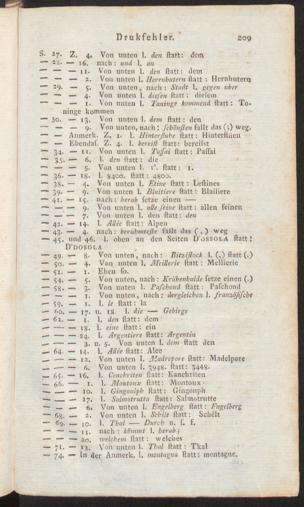 Druckfehler. 209
S. 27. Z. 4. Von unten l. den ſtatt: dem
— 28. — 16. nach: und l. an
— — — 11. Von unten l. den ſtatt: dem
— — — 2. Von unten l. Herrnhutern ſtatt: Hernhutern
— 29. — 5. Von unten, nach: Stadt l. gegen über
— — — 4. Von unten l. dieſen ſtatt: dieſem
— — — 1. Von unten l. Taninge kommend ſtatt: To-
ninge kommen
— 30. — 13. Von unten l. dem ſtatt: den
— — — 9. Von unten, nach: ſchlieſſen fällt das (;) weg.
— — Anmerk. Z. 1. l. Hinterſuhr ſtatt: Hinterſtüen
— — Ebendaſ. Z. 4. l. bereiſt ſtatt: bereiſſt
— 34. — 11. Von unten l. ſtatt: Paſſai
— 35. — 6. l. den ſtatt: die
— — — 5. Von unten l. 1'. ſtatt: 1.
— 36. — 18. l. 8400. ſtatt: 4800.
— 38. — 4. Von unten l. ſtatt: Leſtines
— 39. — 9. Von unten l. Blaitiere ſtatt: Blaiſiere
— 41. — 15. nach: herab ſetze einen —
— — — 9. Von unten l. alle ſeine ſtatt: allen ſeinen
— — — 7. Von unten l. den ſtatt: den
— 42. — 14. l. Allée ſtatt: Alpen
— 43. — 4. nach: berühmteſte fällt das (,) weg
— 45. und 46. l. oben an den Seiten D'OSSOLA ſtatt:
D'DOSOLA
— 49. — 8. Von unten, nach: Bitzliſtock l. (.) ſtatt (,)
— 50. — 4. Von unten l. Meillerie ſtatt: Mellierie
— 51. — 1. Eben ſo.
— 54. — 5. Von unten, nach: Krähenbalde ſetze einen (.)
— 58. — 3. Von unten l. Paſchoud ſtatt: Paſchond
— — — 1. Von unten, nach: dergleichen l. franzöſiſche
— 59. — 1. l. le ſtatt: la
— 60. — 17. u. 18. l. die — Gebirge
— 62. — 1. l. den ſtatt: dem
— — — 18. l. eine ſtatt: ein
— — — 24. l. Argentiere ſtatt: Argentin
— — — 3. u. 5. Von unten l. dem ſtatt den
— 64. — 14. l. Allée ſtatt: Alee
— — — 12. Von unten l. Madrepore ſtatt: Madelpore
— — — 16. Von unten l. 3948. ſtatt: 3448.
— 65. — 16. l. Conchriten ſtatt: Kanchriten
— 66. — 1. l. Montoux ſtatt: Montoux
— — — 10. l. Gingoulph ſtatt: Gingonph
— — — 17. l. Salmotratta ſtatt: Salmotrutte
— — — 6. Von unten l. Engelberg ſtatt: Fugelberg
— 68. — 2. Von unten l. Schilt ſtatt: Schêlt
— 69. — 10. l. Thal — Durch u. ſ. f.
— — — 11. nach: kömmt l. herab;
— — — 20. welchem ſtatt: welches
— 71. — 13. Von unten l. Thal ſtatt: Tkal
— 74. — In der Anmerk. l. montagus ſtatt: montagne.